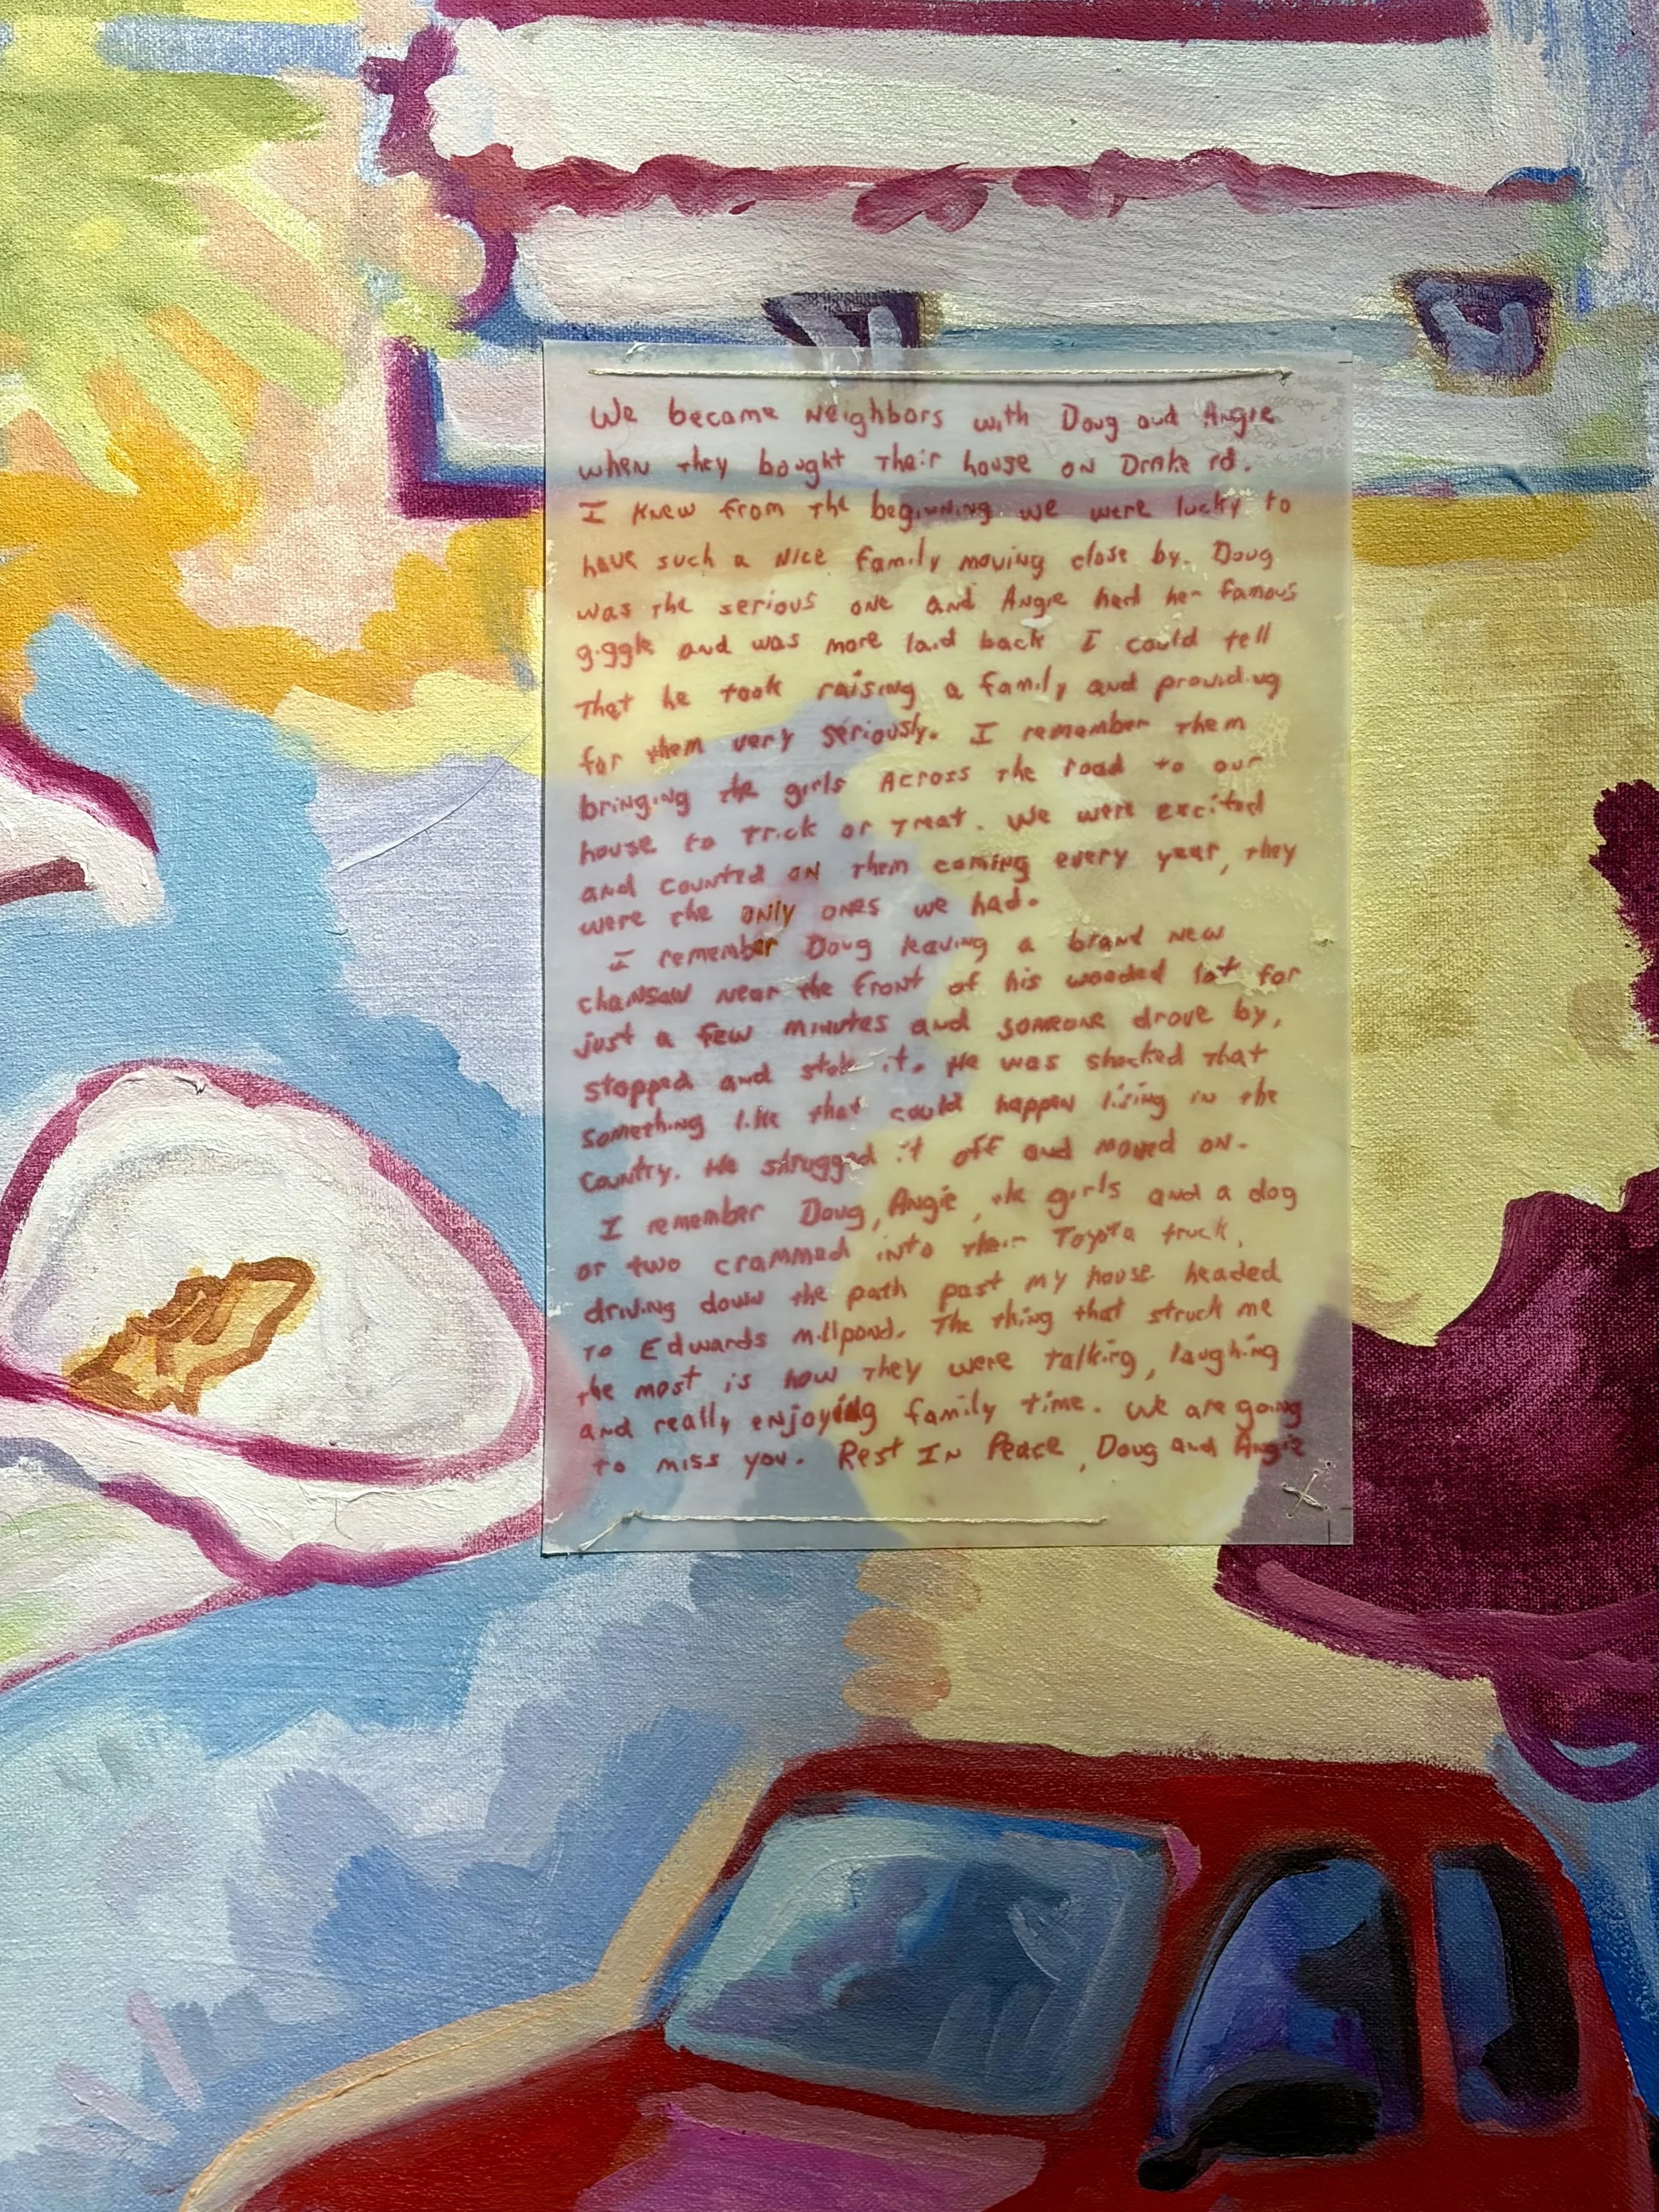 We became Neighbors with Doug and Angie
when they bought their house on Drake rd.
I knew from the beginning we were lucky to
have such a nice family moving close by. Doug
was the serious one and Angie had her famous
giggle and was more laid back I could tell
that he took raising a family and providing
for them very seriously. I remember them
bringing the girls across the road to our
house to trick or treat. We were excited
and counted on them coming every year, they
were the only ones we had.
I remember Doug leaving a brand new
chainsaw near the front of his wooded lot for
just a few minutes and someone drove by,
stopped and stole it. He was shocked that
something like that could happen living in the
country. He shrugged it off and moved on.
I remember Doug, Angie, the girls and a dog
or two crammed into their Toyota truck,
driving down the path past my house headed
to Edwards millpond. The thing that struck me
the most is how they were talking, laughing
and really enjoying family time. We are going
to miss you. Rest In Peace, Doug and Angie